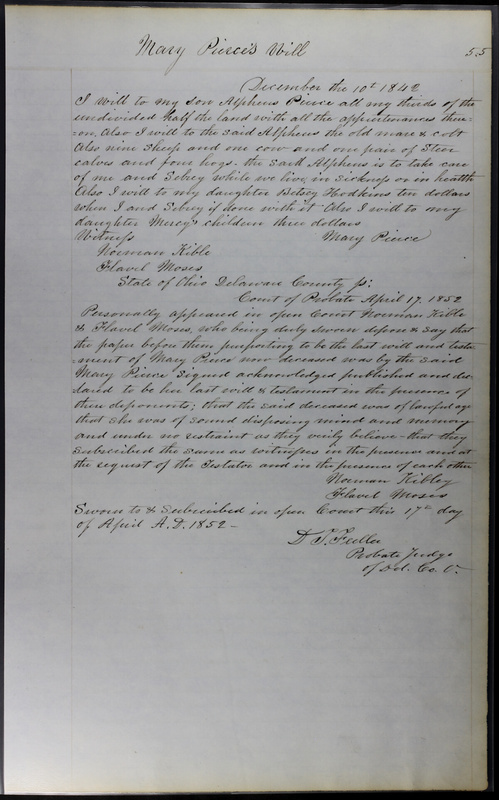 Mary Pierce's Will
55
December the 10th 1842
I will to my son Alpheus Pierce all my thirds of the
undivided half the land with all the appurtenances there-
=on, also I will to the said Alpheus the old mare & colt
Also nine sheep and one cow and one pair of Steer
calves and four hogs. the said Alpheus is to take care
of me and Sebrey while we live, in sickness or in health
Also I will to my daughter Betsey Hodkins ten dollars
when I and Sebrey if done with it Also I will to my
daughter Mercy's children three dollars
Witness Mary Pierce
Norman Kible
Flavel Moses
State of Ohio Delaware County ss;
Court of Probate April 17, 1852
Personally appeared in open Court Norman Kible
& Flavel Moses, who being duly sworn depose & say that
the paper before them purporting to be the last will and testa-
=ment of Mary Pierce now deceased was by the said
Mary Pierce signed acknowledged published and dec-
lared to be her last will & testament in the presence of
these deponents; that the said deceased was of lawful age
that she was of sound disposing mind and memory
and under no restraint as they verily believe - that they
subscribed the same as witnesses in the presence and at
the request of the Testator and in the presence of each other
Norman Kibley
Flavel Moses
Sworn to & Subscribed in open Court this 17th day
of April A.D. 1852 -
D. T. Fuller
Probate Judge
of Del. Co. O.